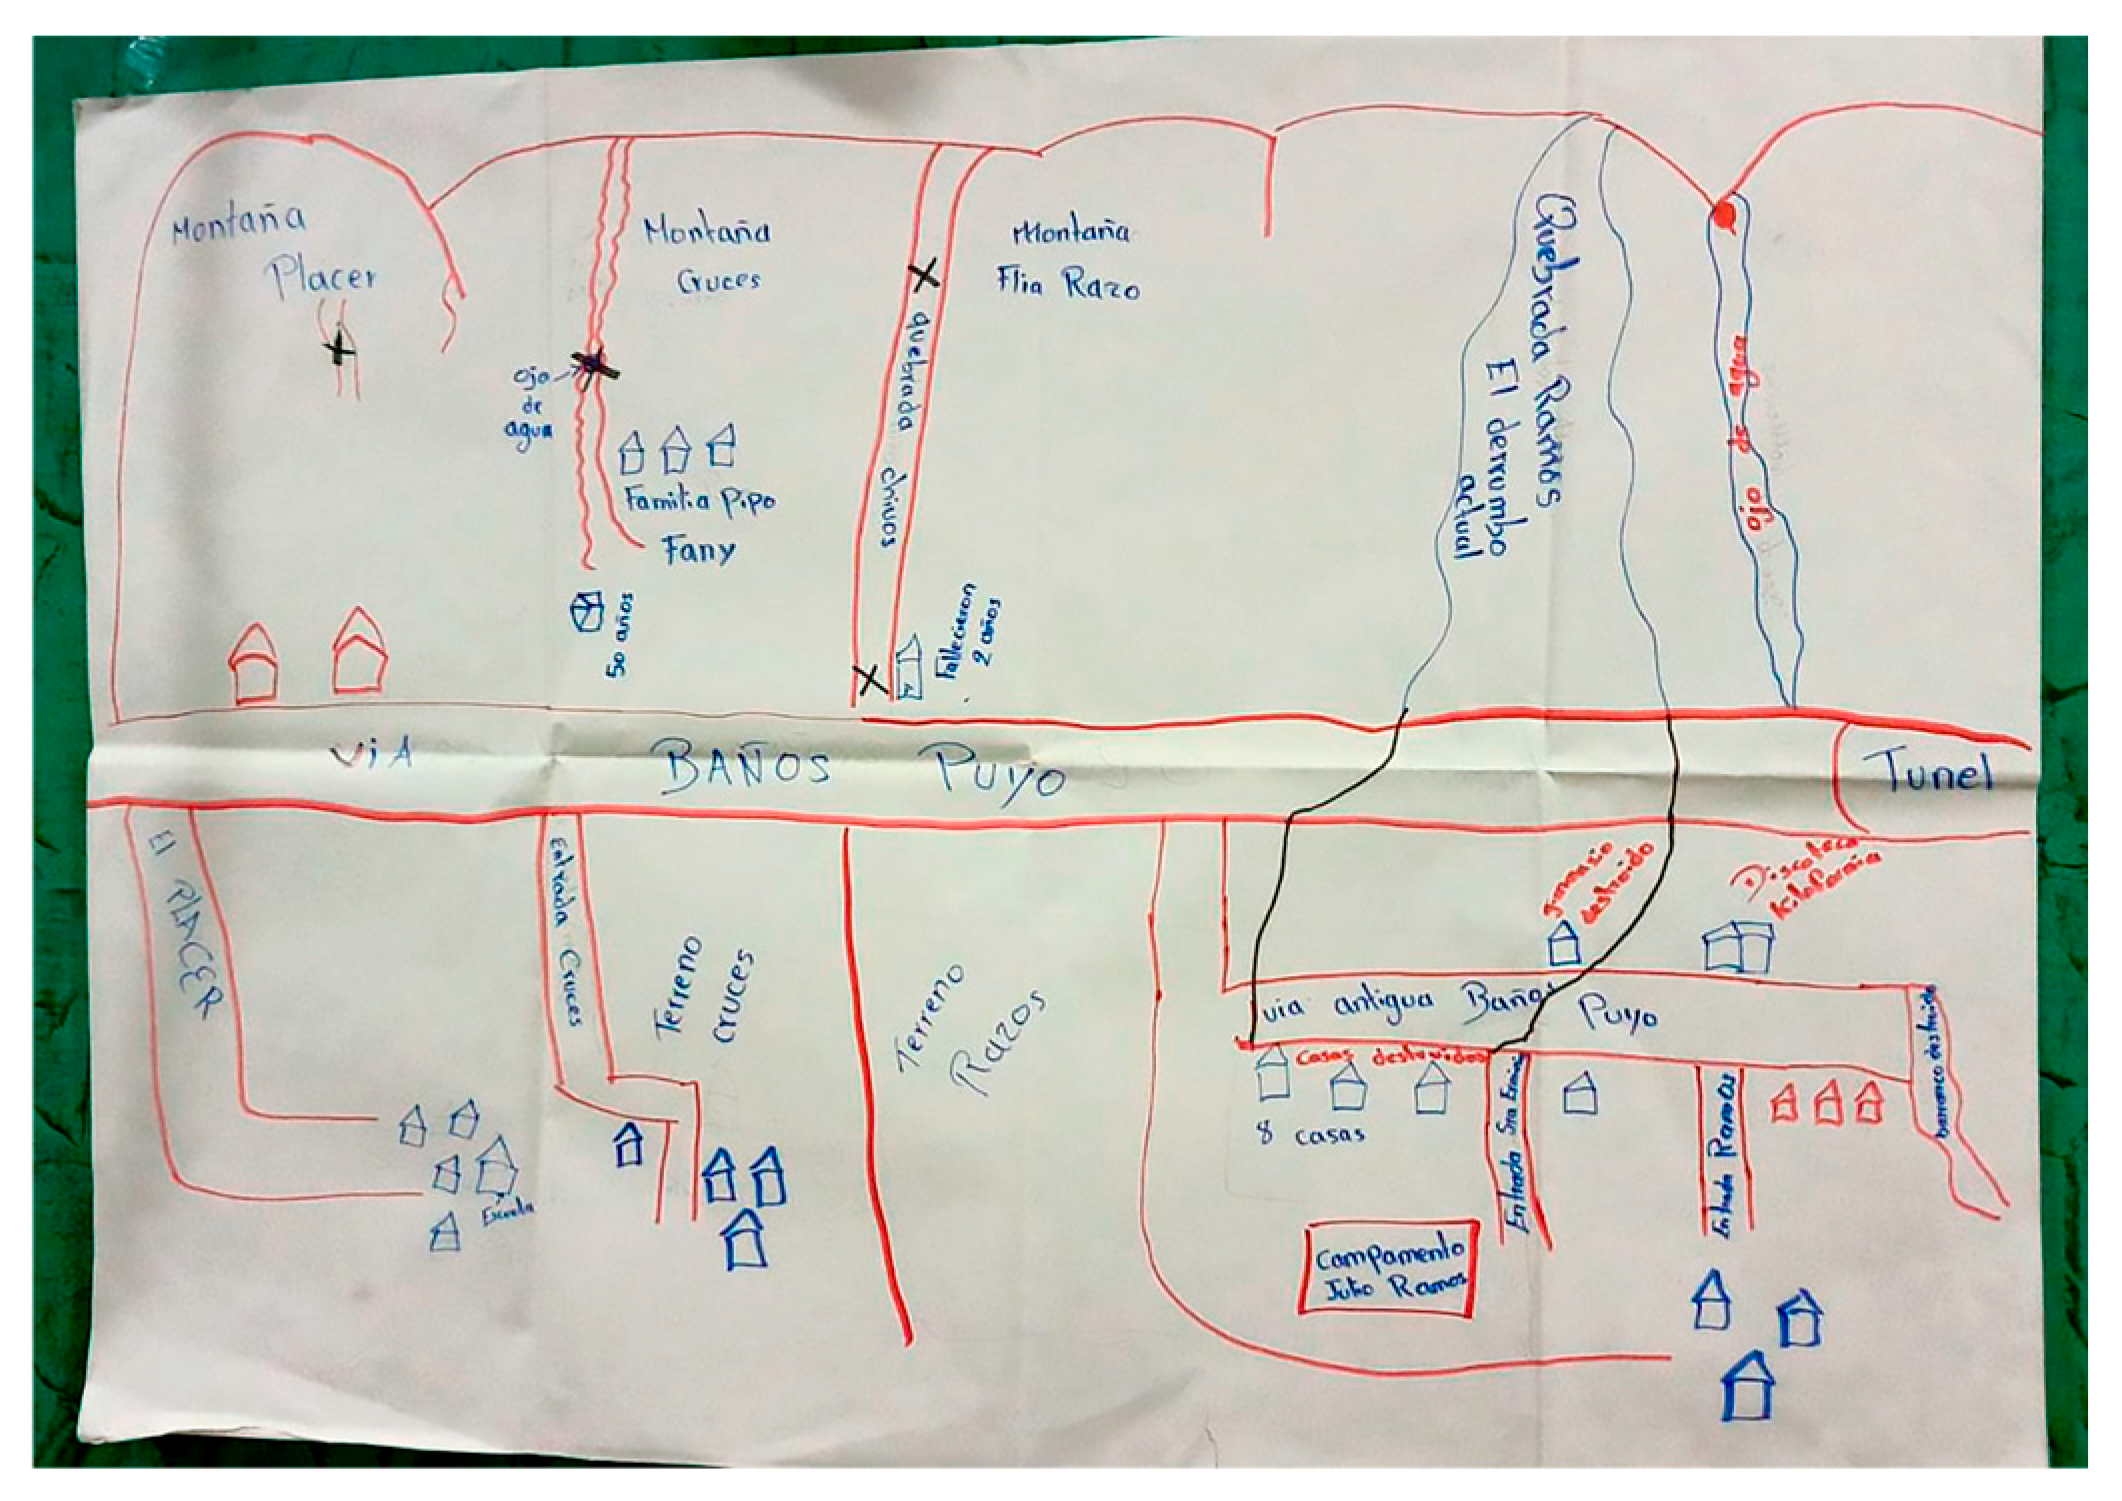 Montaña
Placer
Montaña
Cruces
Montaña
Flia Razo
Quebrada Ramos
El derrumbo
actual
ojo de agua
ojo
de
agua
quebrada chivos
Familia Pipo
Fany
50 años
Fallecieron
2 años
VIA BAÑOS PUYO
Tunel
El PLACER
Entrada Cruces
Terreno
Cruces
Terreno
Razos
destruido
Discoteca
via antigua Baños Puyo
barranco destruido
casas destruidas
8 casas
Entrada Sra
Entrada Ramos
Escuela
Campamento
Julio Ramos